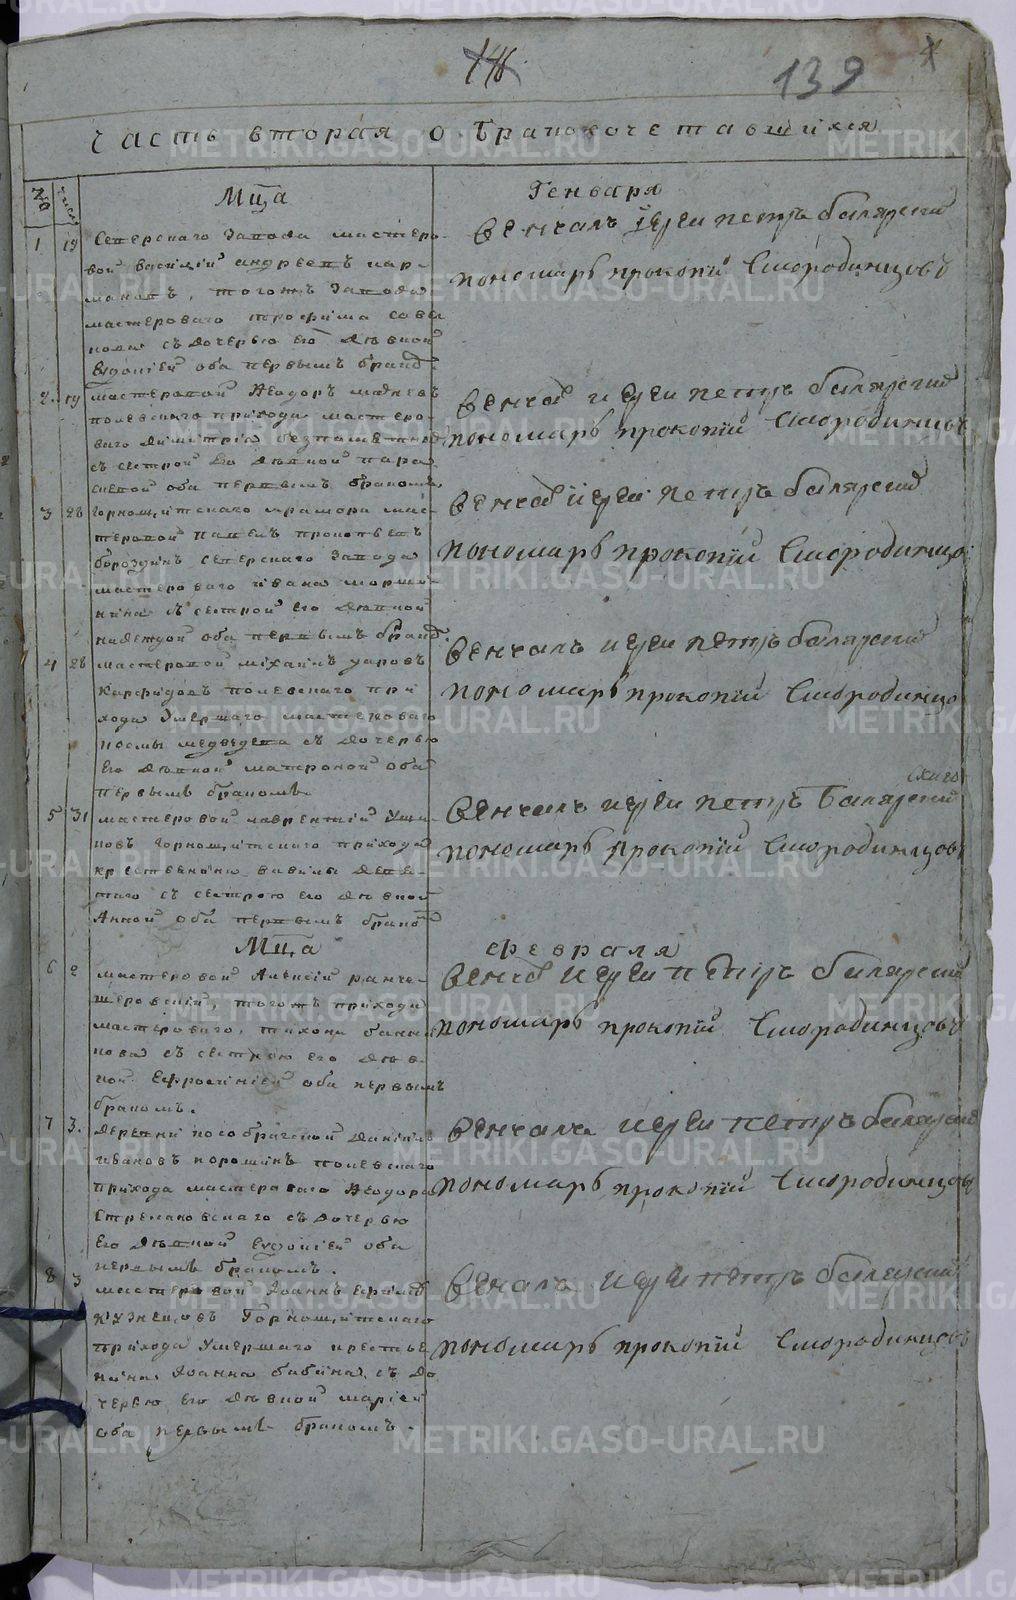 146
139
Часть вторая о бракосочетавшихся
№
число
Мца
Генваря
1 19 Северскаго завода мастеро-
вой Василий Андреевъ кар-
манов, тогожъ завода
мастероваго Трофима
съ дочерью его дѣвкой
Евдокіей оба первымъ брако
Венчалъ Иерей Петръ Билярский
пономарь Прокопий Смородинцовъ
2 19 мастеровой Ѳеодоръ
полевскаго прихода мастеро-
ваго Димитрия
съ сестрой его дѣвкой Пара
скевой оба первымъ бракомъ
Венча Иерей Петръ Билярский
пономарь Прокопий Смородинцовъ
3 28 Горнощитскаго мрамора мас-
теровой Павелъ Прокопьевъ
Бороздинъ северскаго завода
мастероваго Ивана
съ сестрой его дѣвкой
Надеждой оба первымъ брако
Венча Иерей Петръ Билярский
пономарь Прокопий Смородинцо
4 28 мастеровой Михаилъ
полевскаго при
хода умершаго мастероваго
Космы Медведева съ дочерью
его дѣвкой Матроной оба
первымъ бракомъ
Венчалъ Иерей Петръ Билярский
пономарь Прокопий Смородинцо
5 31 мастеровой Лаврентий Уша-
ковъ Горнощитскаго прихода
крестьянина Вавилы
съ сестрою его дѣвкой
Анной оба первымъ брако
Венчалъ Иерей Петръ Билярский
пономарь Прокопий Смородинцовъ
Мца
Февраля
6 2 мастеровой Алексий
тогожъ прихода
мастероваго, Тихона Банни
кова съ сестрою его дѣв
кой Ефросинией оба первымъ
бракомъ.
Венча Иерей Петръ Билярский
пономарь Прокопий Смородинцовъ
7 3. Деревни Кособродской Даниилъ
Ивановъ порошинъ полевскаго
прихода мастероваго Ѳеодора
съ дочерью
его дѣвкой Евдокией оба
первымъ бракомъ.
Венчалъ Иерей Петръ Билярский
пономарь Прокопий Смородинцовъ
8 3 мастеровой Иоаннъ
Кузнецовъ Горнощитскаго
прихода умершаго крестья
нина Иоанна Бабина, съ до
черью его дѣвкой Марией
оба первымъ бракомъ.
Венчалъ Иерей Петръ Билярский
пономарь Прокопий Смородинцовъ
METRIKI.GASO-URAL.RU